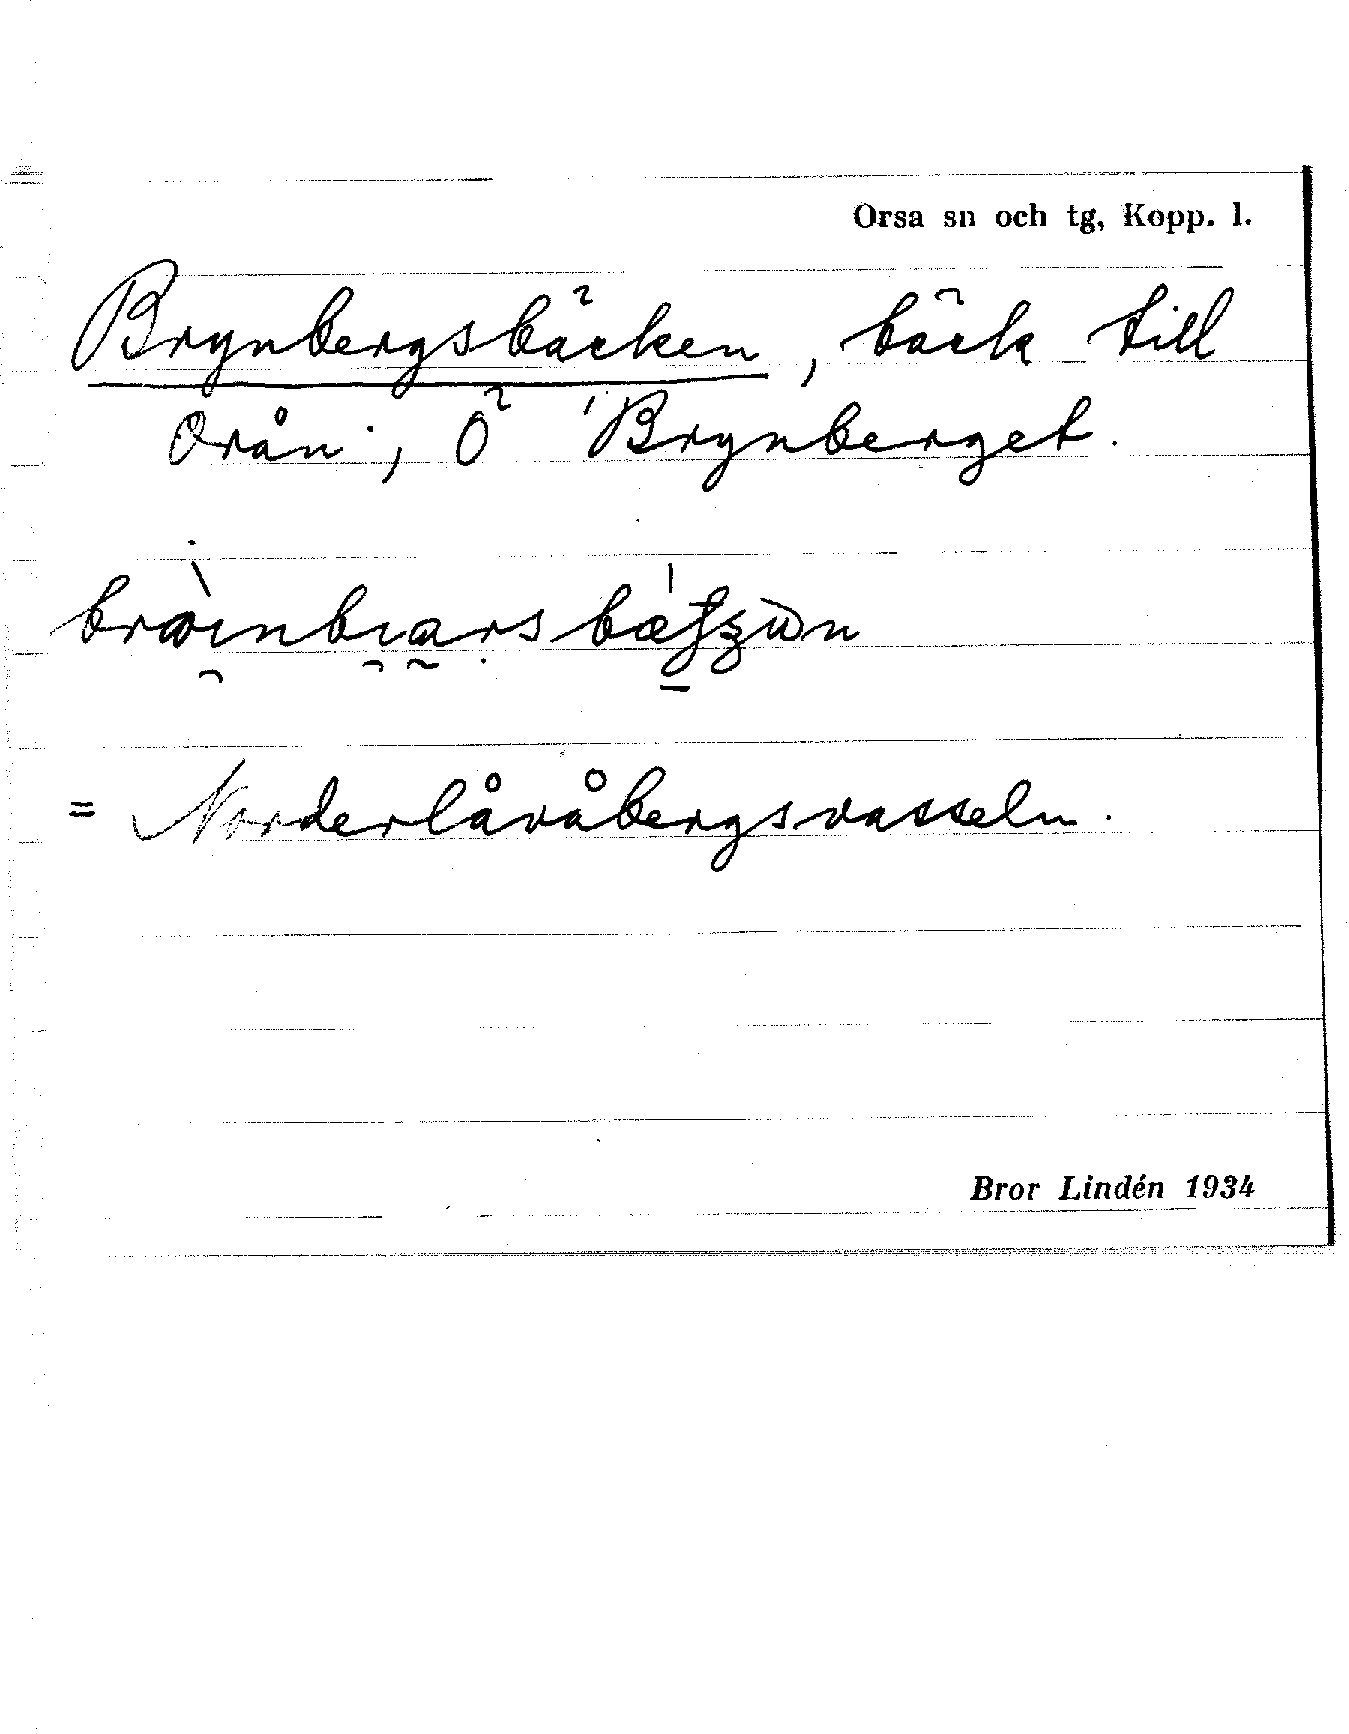 Orsa sn och tg, Kopp. l.
Brynbergsbäcken, bäck till
Orån, Ö Brynberget.
= Norderlåvåbergsvasseln.
Bror Lindén 1934